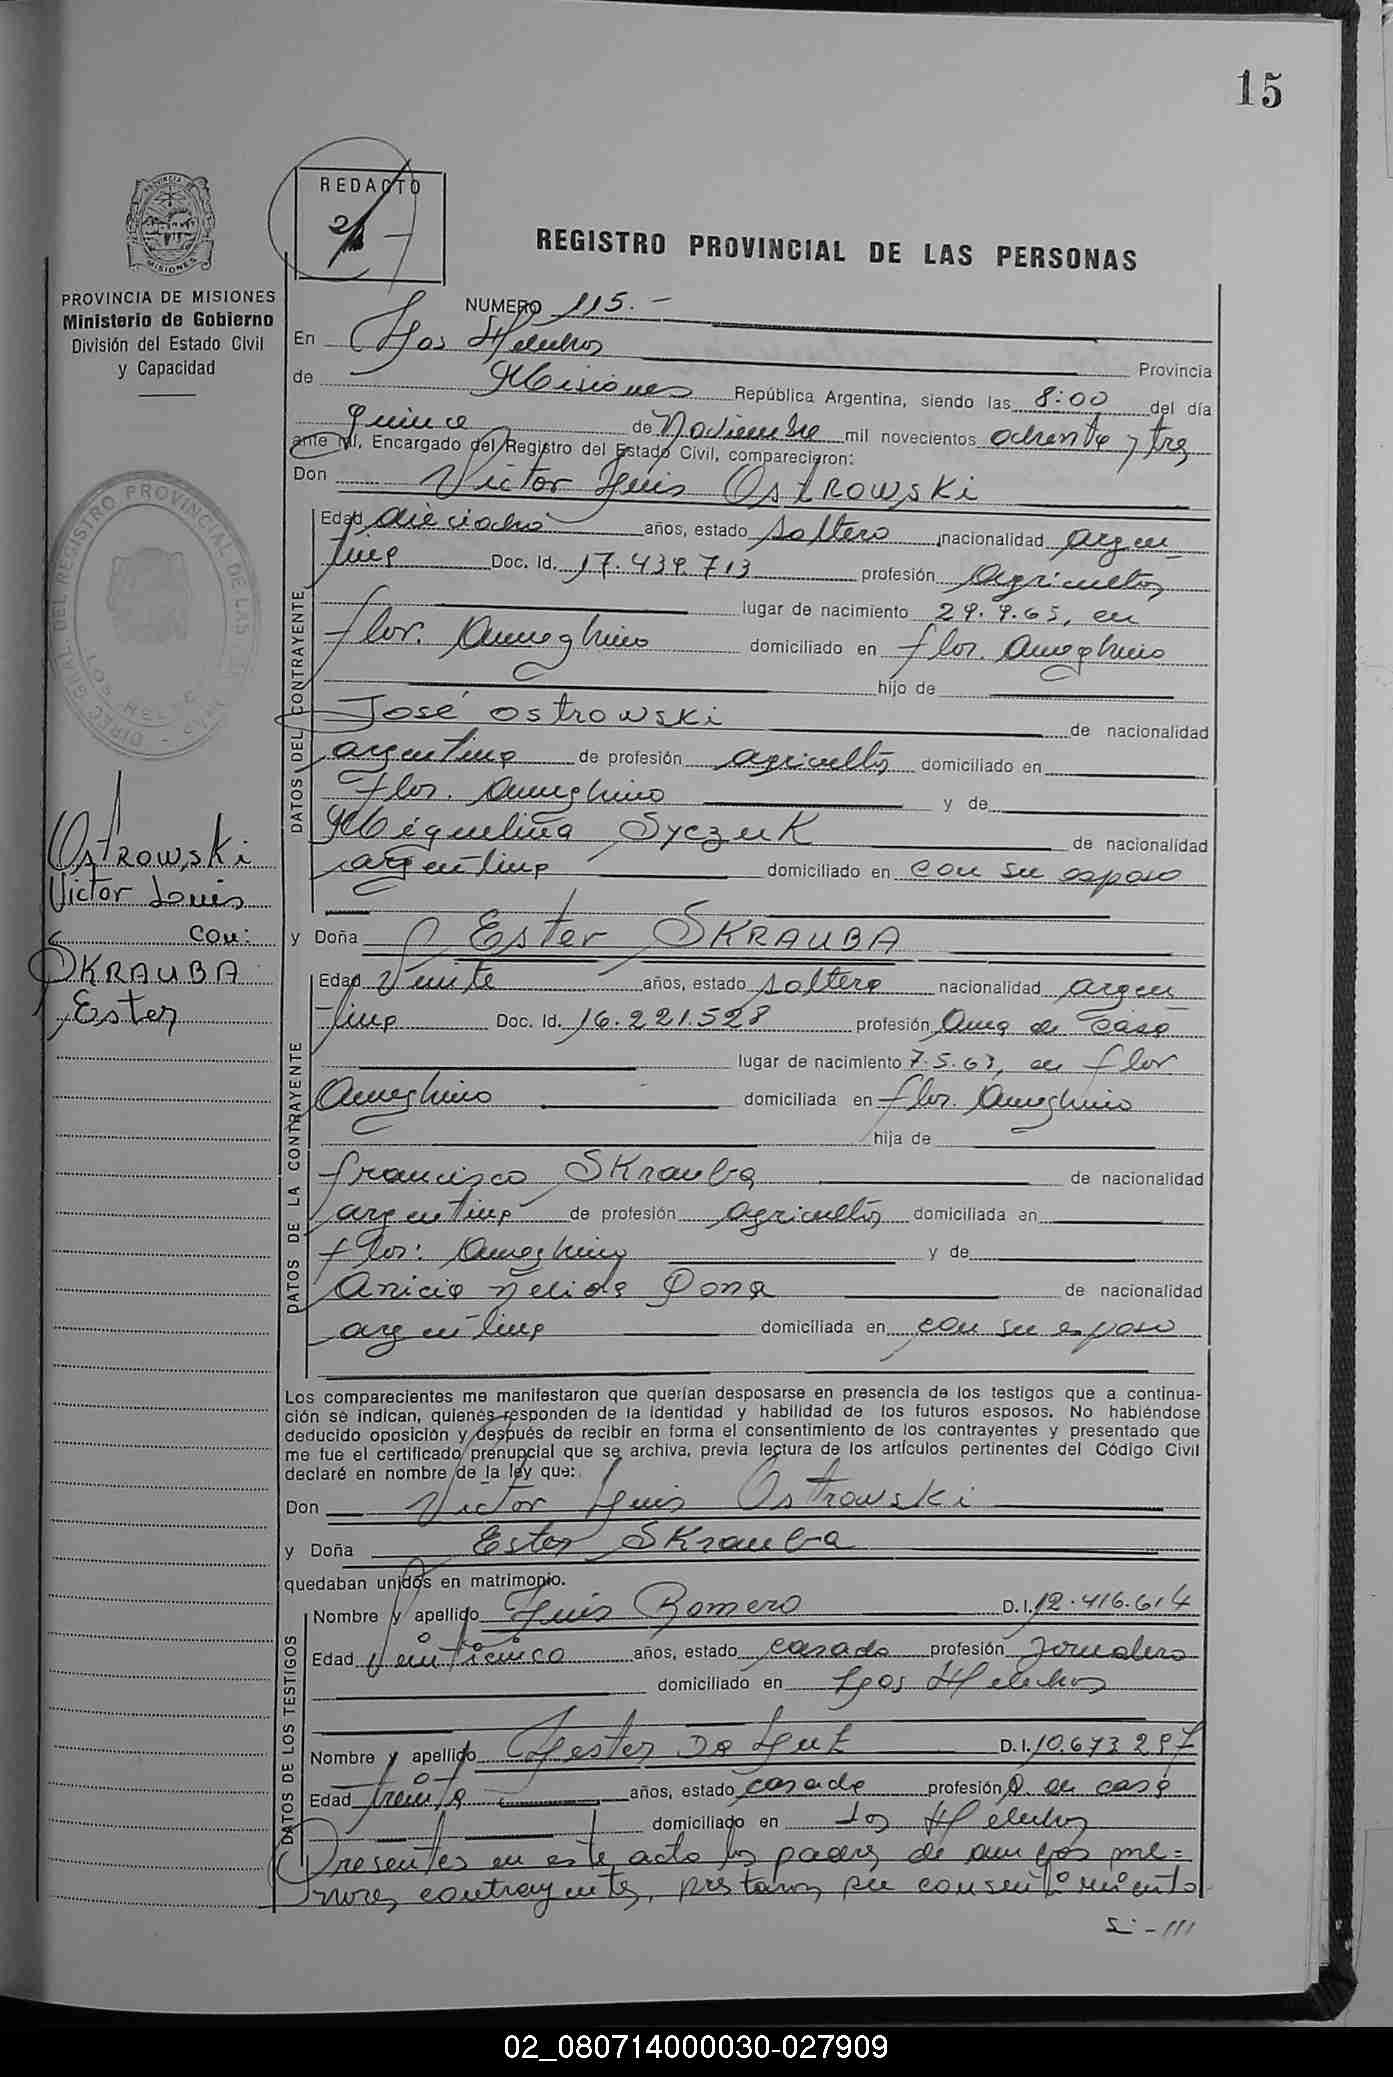 15
REDACTO
PROVINCIA DE
MISIONES
REGISTRO PROVINCIAL DE LAS PERSONAS
PROVINCIA DE MISIONES
Ministerio de Gobierno
División del Estado Civil
y Capacidad
NUMERO 115.-
En Los Helechos Provincia
de Misiones República Argentina, siendo las 8:00 del día
quince de Noviembre mil novecientos ochenta y tres
ante mí, Encargado del Registro del Estado Civil, comparecieron:
Don Victor Luis Ostrowski
DATOS DEL CONTRAYENTE
Edad dieciocho años, estado soltero nacionalidad argen
tina Doc. Id. 17.439.713 profesión agricultor
lugar de nacimiento 29.9.65, en
flor. Ameghino domiciliado en flor. Ameghino
hijo de
José Ostrowski de nacionalidad
argentina de profesión agricultor domiciliado en
flor. Ameghino y de
Miguelina Syczuk de nacionalidad
argentina domiciliado en con su esposo
Ostrowski
Victor Louis
con:
SKRAUBA
Ester
y Doña Ester SKRAUBA
DATOS DE LA CONTRAYENTE
Edad Veinte años, estado soltera nacionalidad argen
tina Doc. Id. 16.221.528 profesión Ama de casa
lugar de nacimiento 7.5.63, en flor
Ameghino domiciliada en flor. Ameghino
hija de
francisco SKrauba de nacionalidad
argentina de profesión agricultor domiciliada en
flor: Ameghino y de
Anicia Nelida Dona de nacionalidad
argentina domiciliada en con su esposo
Los comparecientes me manifestaron que querían desposarse en presencia de los testigos que a continua-
ción se indican, quienes responden de la identidad y habilidad de los futuros esposos. No habiéndose
deducido oposición y después de recibir en forma el consentimiento de los contrayentes y presentado que
me fue el certificado prenupcial que se archiva, previa lectura de los artículos pertinentes del Código Civil
declaré en nombre de la ley que:
Don Victor Luis Ostrowski
y Doña Ester SKrauba
quedaban unidos en matrimonio.
DATOS DE LOS TESTIGOS
Nombre y apellido Luis Romero D.I. 12.416.614
Edad Veinticinco años, estado casado profesión Jornalero
domiciliado en Los Helechos
Nombre y apellido Lester Da Luz D.I. 10.673.297
Edad treinta años, estado casada profesión Q. en casa
domiciliado en Los Helechos
Presentes en este acto los padres de ambos me=
nores contrayentes, prestaron su consentimiento
02_080714000030-027909